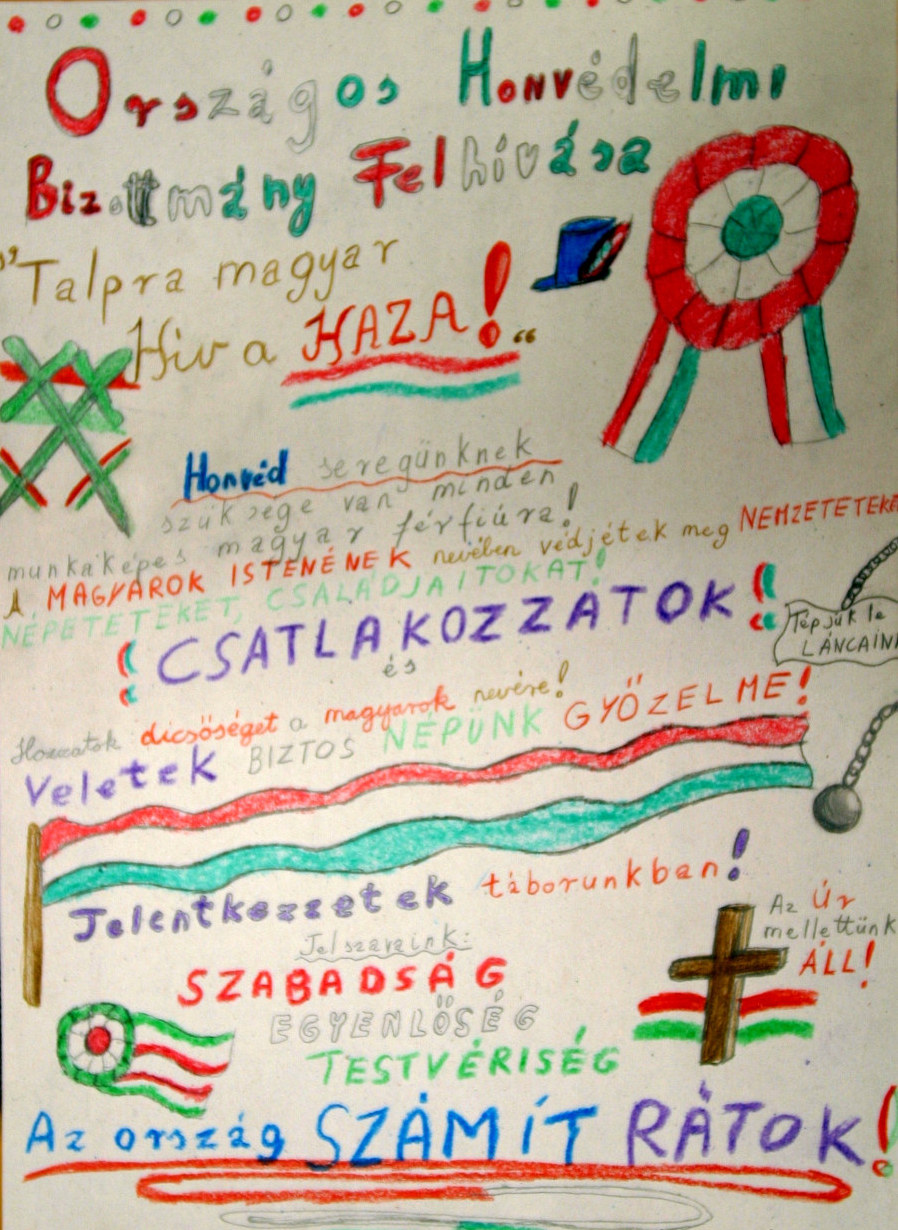 Országos Honvédelmi
Bizottmány Felhívása
"Talpra magyar
Hív a HAZA!"
Honvéd seregünknek
szüksége van minden
munkaképes magyar férfiúra!
A MAGYAROK ISTENÉNEK nevében védjétek meg NEMZETETEKET
NÉPETEKET, CSALÁDJAITOKAT!
CSATLAKOZZATOK!
Tépjük le
LÁNCAINK
és
Hozzatok dicsőséget a magyarok nevére!
Veletek BIZTOS NÉPÜNK GYŐZELME!
Jelentkezzetek táborunkban!
Az Úr
mellettünk
ÁLL!
Jelszavaink:
SZABADSÁG
EGYENLŐSÉG
TESTVÉRISÉG
Az ország SZÁMÍT RÁTOK!